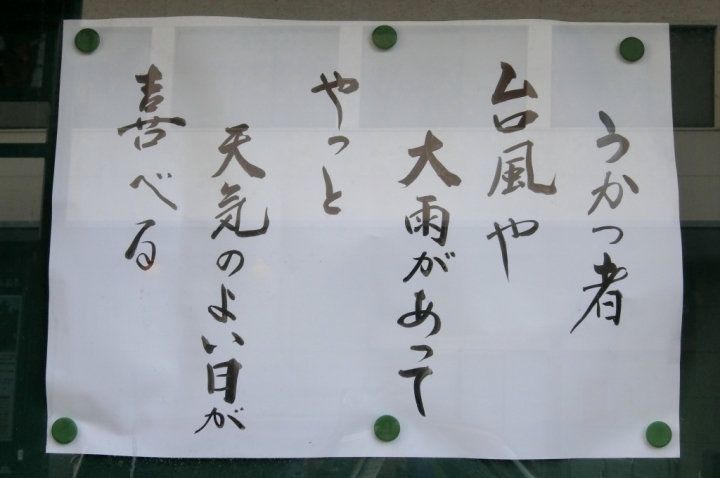 うかつ者
台風や
大雨があって
やっと
天気のよい日が
喜べる